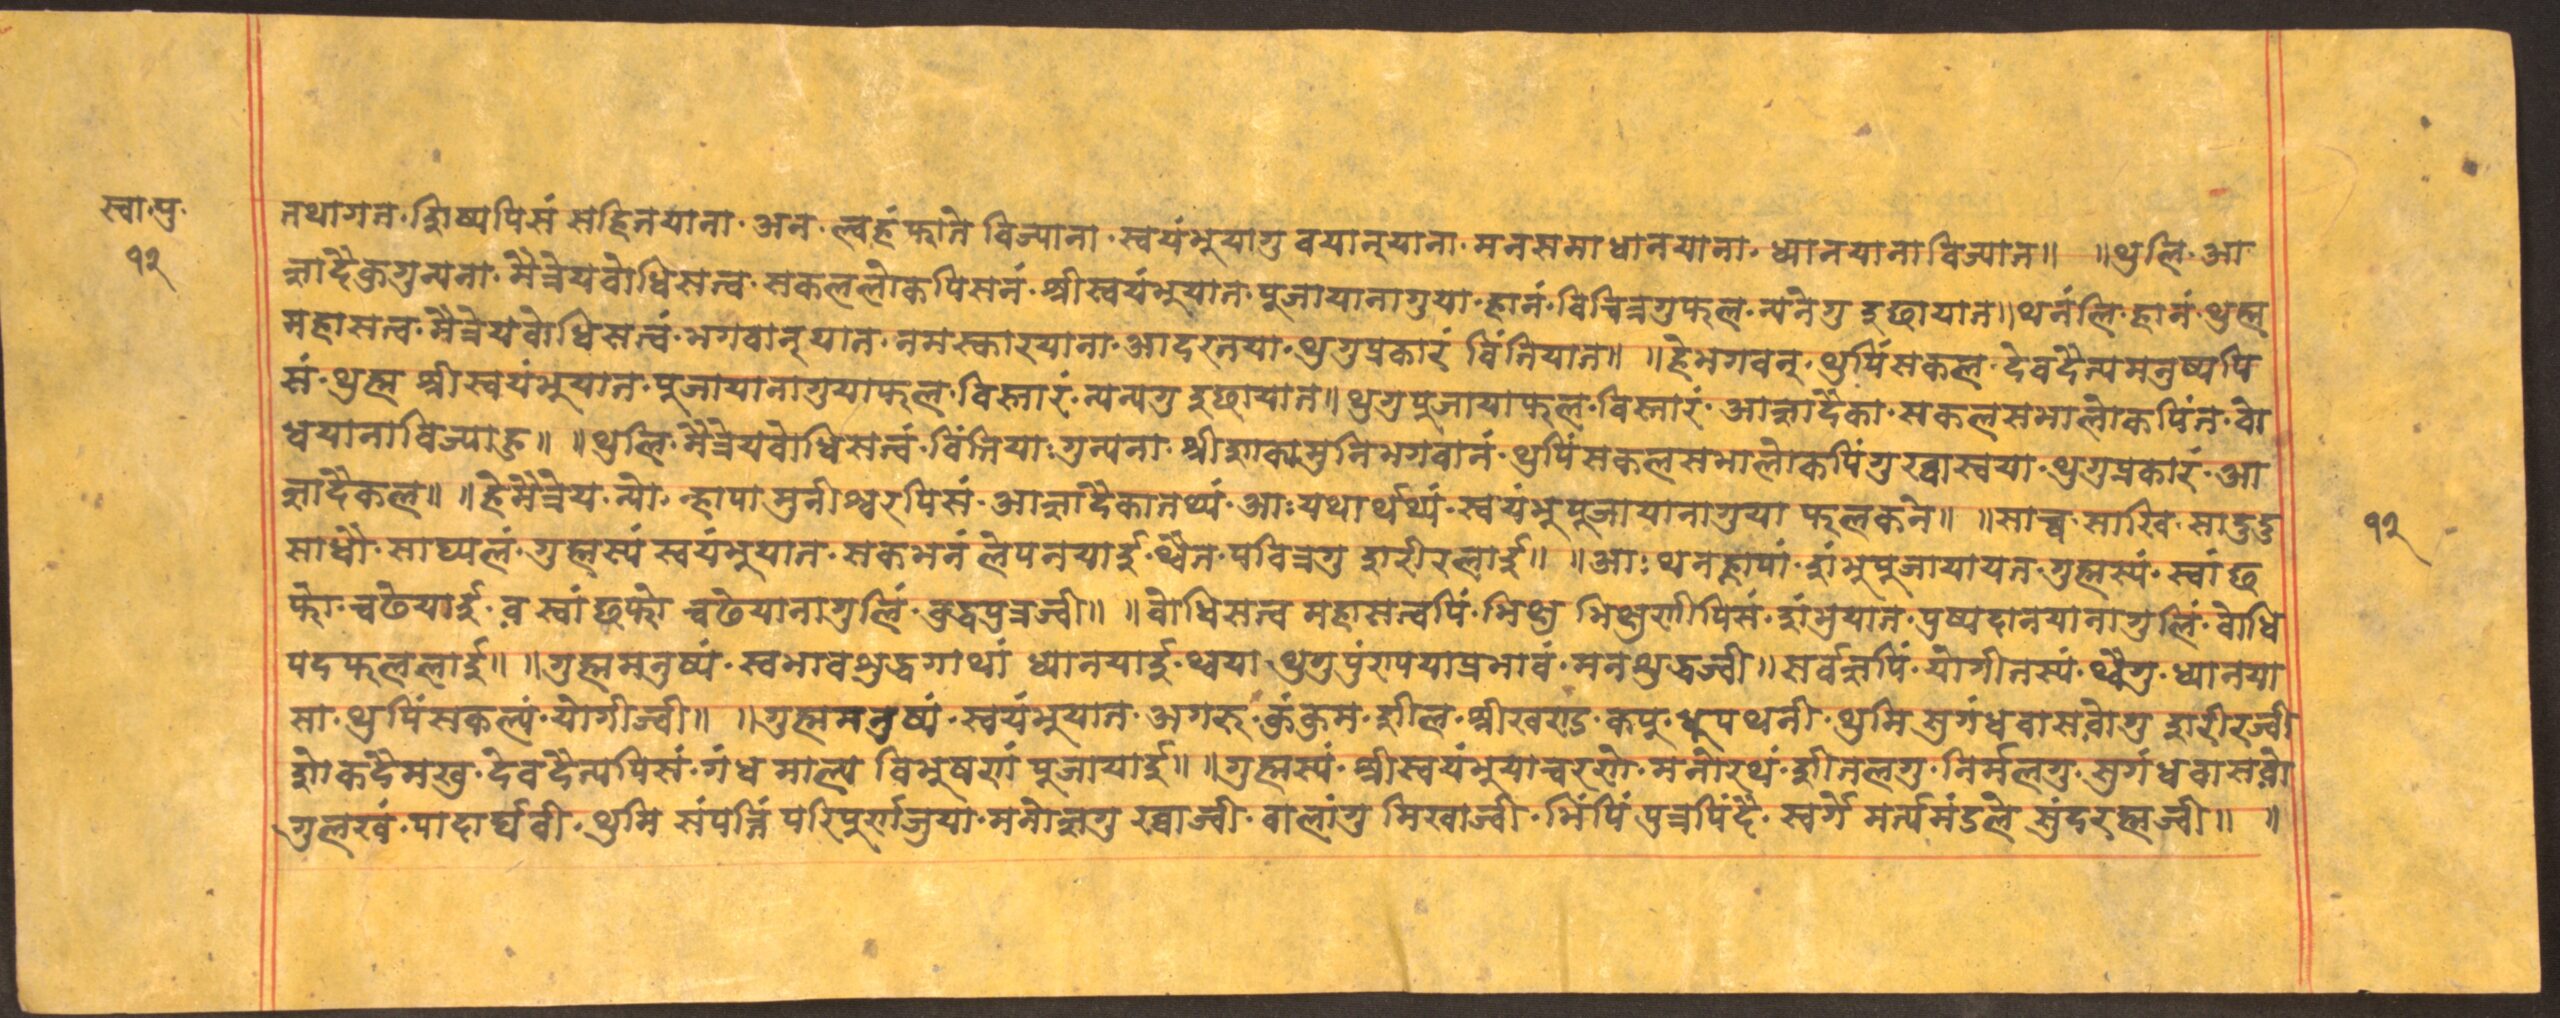 स्वा.पु.
१२
तथागत. शिष्यपिसं सहितयाना. अन. ल्वहं फाते विज्याना. स्वयंभुयागु वयानुयाना. मनसमाधानयाना. ध्यानयाना विज्यात॥ ॥थुलि. आ
ज्ञादैकुगुन्यना. मैत्रेयबोधिसत्व. सकललोकपिसनं. श्रीस्वयंभुयात. पुजायानागुया. हानं. विचित्रगुफल. न्यनेगु इछायात॥ थनंलि. हानं. थुह्म
महासत्व. मैत्रेयबोधिसत्वं. भगवान्‌यात. नमस्कारयाना. आदरनया. थुगुप्रकारं विंतियात॥ ॥हेभगवन्. थुपिंसकल. देवदैत्यमनुष्यपि
सं. थुह्म श्रीस्वयंभुयात. पुजायानागुयाफल. विस्तारं. न्यन्यगु इछायात॥ थुगुपुजायाफल. विस्तारं. आज्ञादैका. सकलसभालोकपिंत. बो
धयानाविज्याहु॥ ॥थुलि. मैत्रेयबोधिसत्वं. विंतियाःगुन्यना. श्रीशाक्यमुनिभगवानं. थुपिंसकलसभालोकपिंगु ख्वास्वया. थुगुप्रकारं. आ
ज्ञादैकल॥ ॥हेमैत्रेय. न्यो. न्हापा मुनीश्वरपिसं. आज्ञादैकातथ्यं. आः यथार्थथ्यं. स्वयंभुपुजायानागुया फलकने॥ ॥सात्त्व. साखि. सादुदु
साधौ. साघ्यलं. गुह्मस्यं स्वयंभुयात. सकभनं लेपनयाई. थ्वैत. पवित्रगु शरीरलाई॥ ॥आः थनह्नापां. शंभुपुजायायत. गुह्मस्यं. स्वां छ
फो. च्वछेयाई. व स्वांछफो च्वछेयानागुलिं. बुद्धपुत्रज्वी॥ ॥बोधिसत्व महासत्वपिं. भिक्षु भिक्षुणीपिसं. शंभुयात. पुष्पदानयानागुलिं. बोधि
पदफललाई॥ ॥गुह्ममनुष्यं. स्वभावशुद्धगाथां ध्यानयाई. थ्वया थुगुपुंण्यपयाप्रभावं. मनशुद्धज्वी॥ सर्वज्ञपिं. योगीतस्यं. थ्वैगु. ध्यानया
सा. थुपिंसकल्यं. योगीज्वी॥ ॥गुह्ममनुष्यं. स्वयंभुयात. अगरु. कुंकुम. शील. श्रीखण्ड. कपु. धूपथनी. थुमि सुगंधवासवोगु शरीरज्वी
शोकदैमखु. देवदैत्यपिसं. गंधमाल्य विभुषणं पुजायाई॥ ॥गुह्मस्यं. श्रीस्वयंभुयाचरणे. मनोरथं. शीतलगु. निर्मलगु. सुगंधवासवो
गुलखं. पादार्घबी. थुमि संपत्तिं परिपुर्णजुया. मनोज्ञगु ख्वाज्वी. बालांगु मिखाज्वी. भिंपिं पुत्रपिंदै. स्वर्गे मर्त्यमंडले सुंदरह्मज्वी॥ ॥
१२